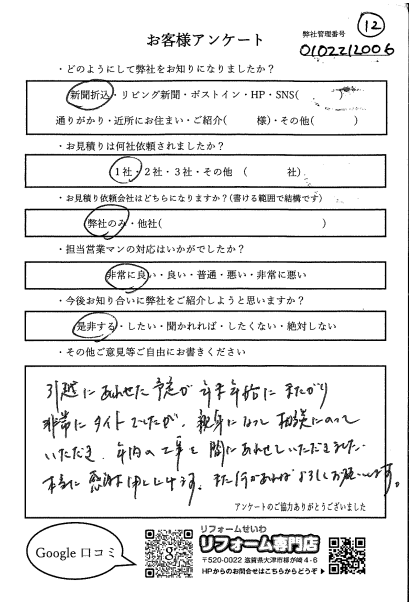 12
お客様アンケート
弊社管理番号
0102212006
・どのようにして弊社をお知りになりましたか？
新聞折込・リビング新聞・ポストイン・HP・SNS(　　　)
通りがかり・近所にお住まい・ご紹介(　　様)・その他(　　　)
・お見積りは何社依頼されましたか？
1社・2社・3社・その他　(　　　社)
・お見積り依頼会社はどちらになりますか？(書ける範囲で結構です)
弊社のみ・他社(　　　)
・担当営業マンの対応はいかがでしたか？
非常に良い・良い・普通・悪い・非常に悪い
・今後お知り合いに弊社をご紹介しようと思いますか？
是非する・したい・聞かれれば・したくない・絶対しない
・その他ご意見等ご自由にお書きください
引越にあわせた予定が年末年始にまたがり
非常にタイトでしたが、親身になって相談にのって
いただき、年内の工事を間にあわせていただきました。
本当に感謝申し上げます。また何かあればよろしくお願いします。
アンケートのご協力ありがとうございました
Google 口コミ
リフォームせいわ
リフォーム専門店
〒520-0022 滋賀県大津市柳が崎4-6
HPからのお問合せはこちらからどうぞ▶